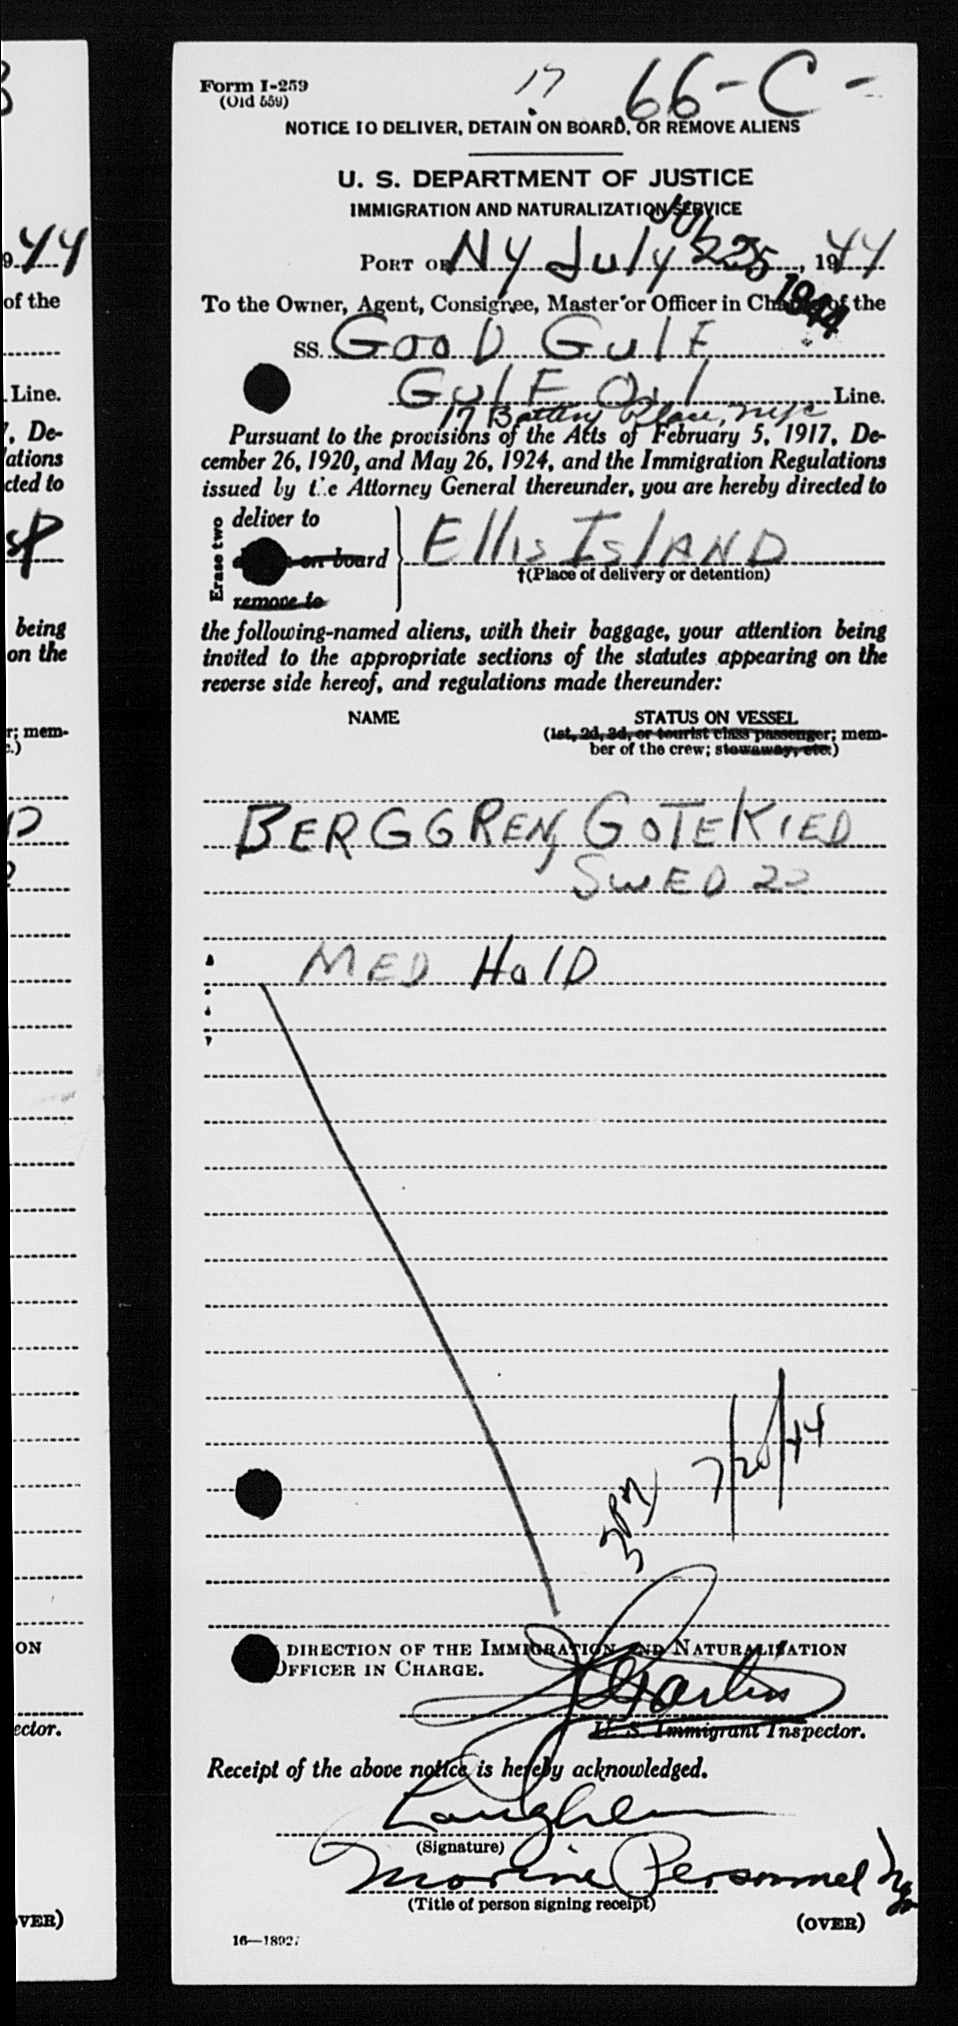 Form I-259
(Old 559)
17 66-C-
NOTICE TO DELIVER, DETAIN ON BOARD, OR REMOVE ALIENS
U. S. DEPARTMENT OF JUSTICE
IMMIGRATION AND NATURALIZATION SERVICE
PORT OF NY July 1944
To the Owner, Agent, Consignee, Master or Officer in Charge of the
SS. GOOD GulF
GulF Oil Line.
17 Battery Place, nyc
Pursuant to the provisions of the Acts of February 5, 1917, De-
cember 26, 1920, and May 26, 1924, and the Immigration Regulations
issued by the Attorney General thereunder, you are hereby directed to
Erase two
deliver to
on board
remove to
Ellis IslAND
†(Place of delivery or detention)
the following-named aliens, with their baggage, your attention being
invited to the appropriate sections of the statutes appearing on the
reverse side hereof, and regulations made thereunder:
NAME STATUS ON VESSEL
(1st, 2d, 3d, or tourist class passenger; mem-
ber of the crew; stowaway, etc.)
BERGGREN, GOTEKIED
SWED 22
MED HolD
7/20/44
DIRECTION OF THE IMMIGRATION AND NATURALIZATION
OFFICER IN CHARGE.
U. S. Immigrant Inspector.
Receipt of the above notice is hereby acknowledged.
(Signature)
Marine Personnel Mgr
(Title of person signing receipt)
(OVER)
44
of the
Line.
, De-
ations
cted to
being
on the
r; mem-
ON
ector.
VER)